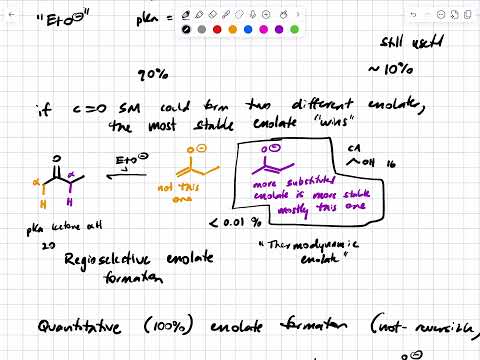 "EtO⊖" pka =
still useful
90% ~10%
if C=O SM could form two different enolates,
the most stable enolate "wins"
O O⊖ O⊖ CA
α α EtO⊖ OH 16
H H not this one
more substituted
enolate is more stable
mostly this one
pka ketone αH
20
< 0.01 %
"Thermodynamic
enolate"
Regioselective enolate
formation
Quantitative (100%) enolate formation (not-reversible)
O⊖